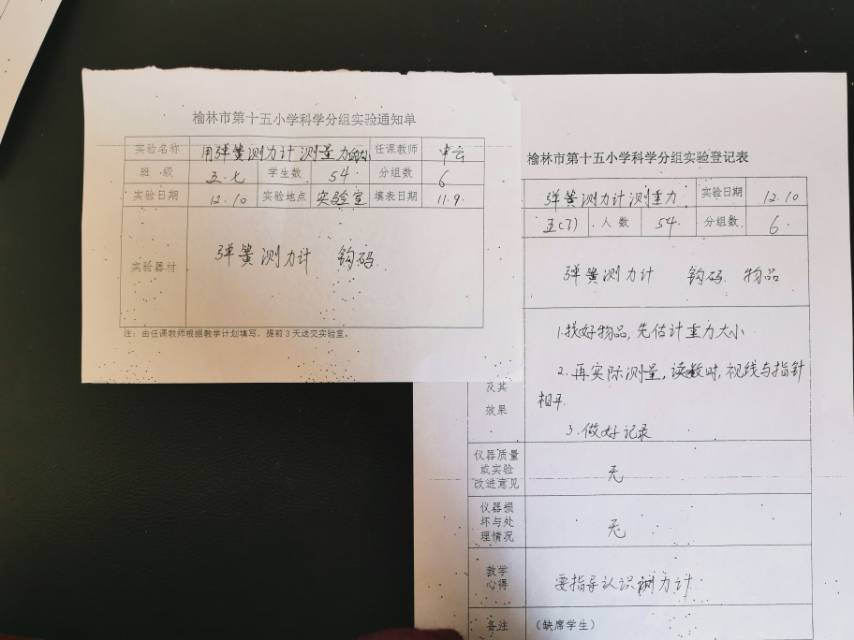 榆林市第十五小学科学分组实验通知单
实验名称 用弹簧测力计测量力的大小 任课教师 申云
班 级 五.七 学生数 54 分组数 6
实验日期 12.10 实验地点 实验室 填表日期 11.9.
实验器材 弹簧测力计 钩码
注：由任课教师根据教学计划填写，提前3天送交实验室。
榆林市第十五小学科学分组实验登记表
弹簧测力计测重力 实验日期 12.10
五(7) 人 数 54. 分组数 6.
弹簧测力计 钩码 物品
1.找好物品,先估计重力大小
2.再实际测量,读数时,视线与指针
相平.
3.做好记录
及其
效果
仪器质量
或实验
改进意见
无
仪器损
坏与处
理情况
无
教学
心得
要指导认识测力计
备注 （缺席学生）